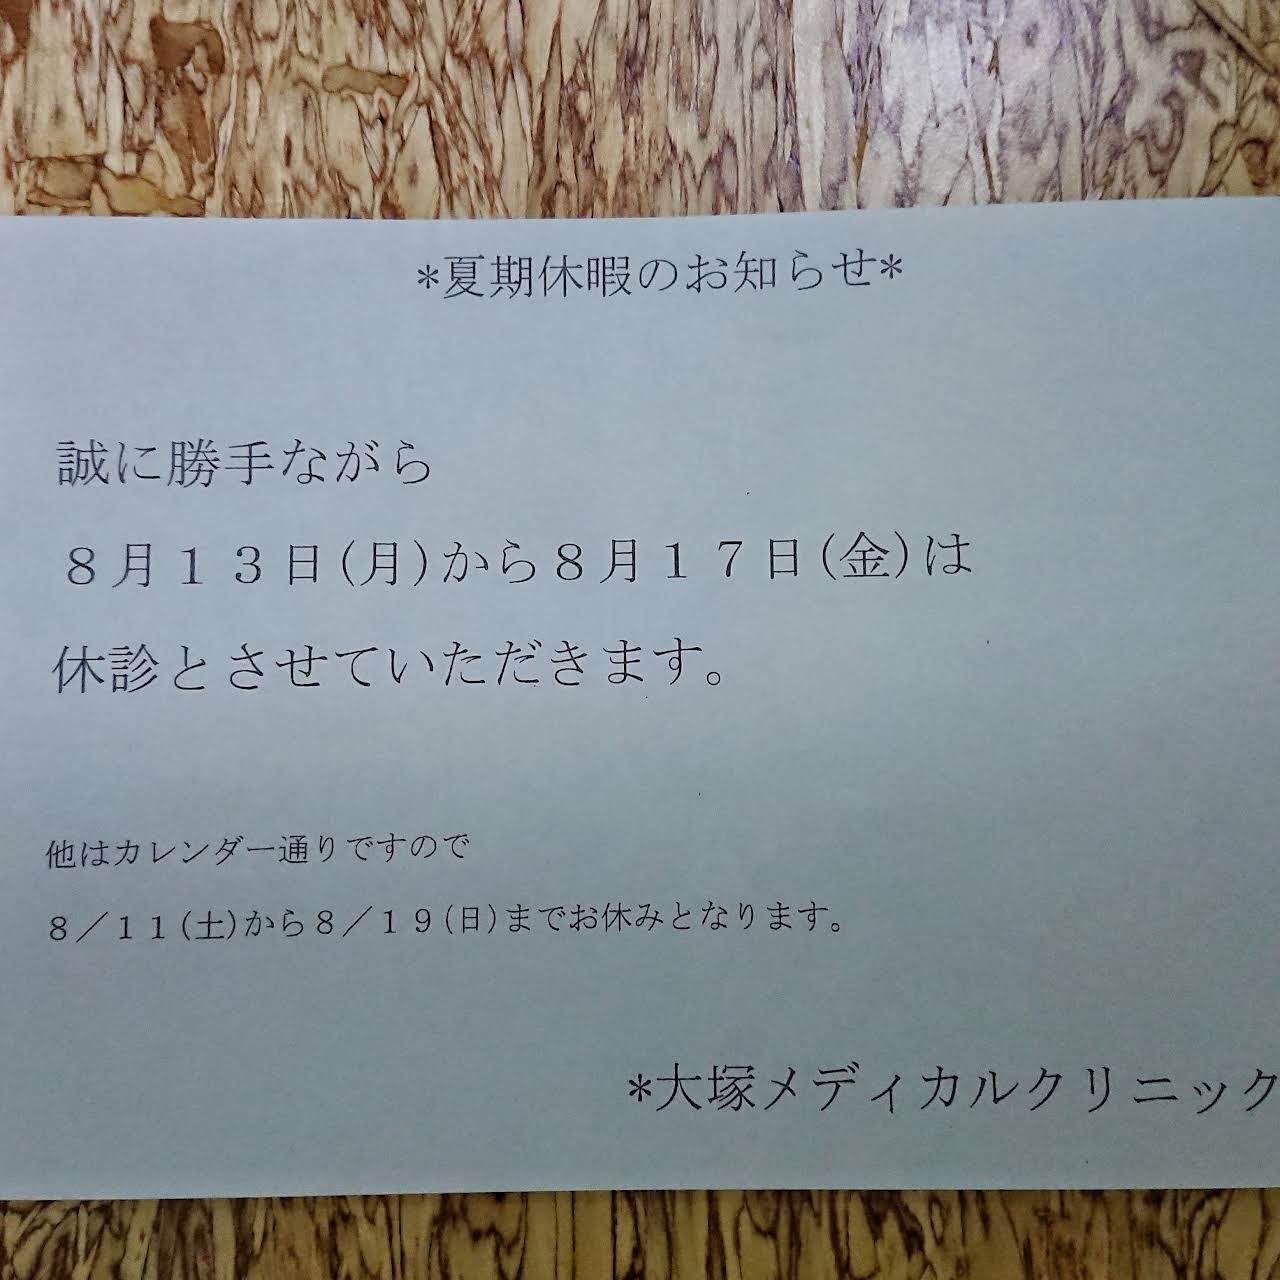 *夏期休暇のお知らせ*
誠に勝手ながら
８月１３日(月)から８月１７日(金)は
休診とさせていただきます。
他はカレンダー通りですので
８／１１(土)から８／１９(日)までお休みとなります。
*大塚メディカルクリニック